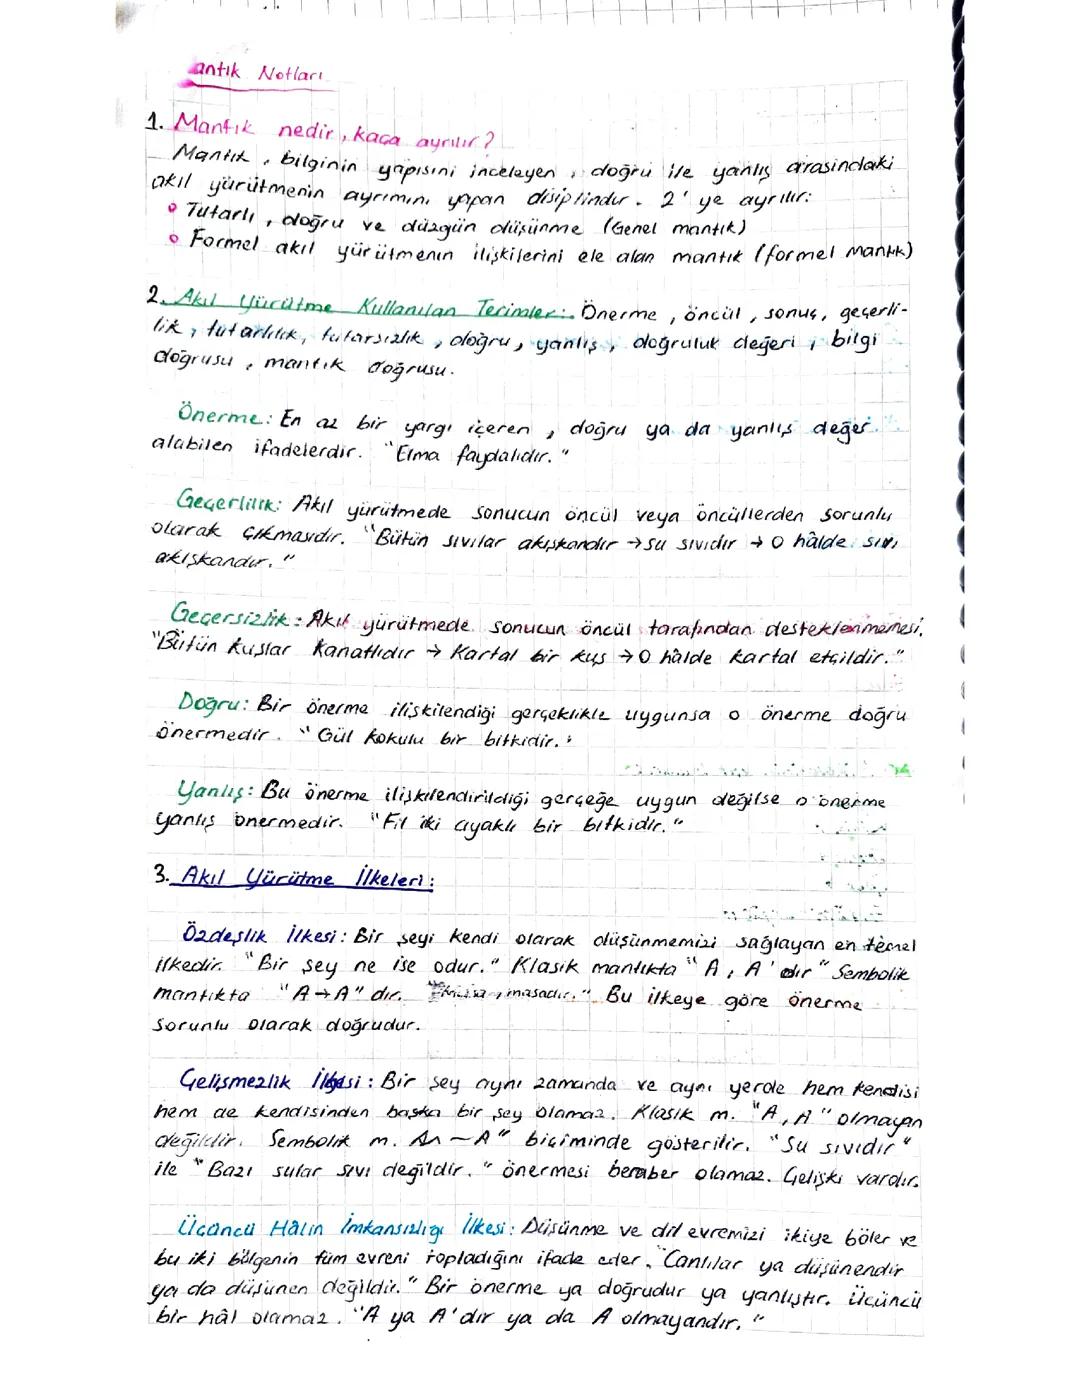 antık Notları
1. Mantık nedir, kaça ayrılır?
Mantık, bilginin yapısını inceleyen, doğru ile yanlış arasındaki
akıl yürütmenin ayrımını yapan disiplindir. 2'ye ayrılır:
Tutarlı, doğru ve düzgün düşünme (Genel mantık)
Formel akıl yürütmenin ilişkilerini ele alan mantık (formel mantık)
2. Akıl Yürütme Kullanılan Terimler: Önerme, öncül, sonuç, geçerli-
lik, tutarlılık, tutarsızlık, doğru, yanlış, doğruluk değeri, bilgi
doğrusu, mantık doğrusu.
Önerme: En az bir yargı içeren, doğru ya da yanlış değer
alabilen ifadelerdir. "Elma faydalıdır."
Geçerlilik: Akıl yürütmede sonucun öncül veya öncüllerden sorunlu
olarak çıkmasıdır. "Bütün sıvılar akışkandır → su sıvıdır → O hâlde sıvı
akışkandır."
Geçersizlik: Akıl yürütmede sonucun öncül tarafından desteklenmemesi.
"Bütün kuşlar kanatlıdır → Kartal bir kuş → O hâlde kartal etçildir."
Doğru: Bir önerme ilişkilendiği gerçeklikle uygunsa o önerme doğru
önermedir. "Gül kokulu bir bitkidir."
Yanlış: Bu önerme ilişkilendirildiği gerçeğe uygun değilse o önerme
yanlış önermedir. "Fil iki ayaklı bir bitkidir."
3. Akıl Yürütme İlkeleri:
Özdeşlik İlkesi: Bir şeyi kendi olarak düşünmemizi sağlayan en temel
ilkedir. "Bir şey ne ise odur." Klasik mantıkta "A, A'dır" Sembolik
mantıkta "A→A" dır. "Masa, masadır." Bu ilkeye göre önerme
sorunlu olarak doğrudur.
Çelişmezlik İlkesi: Bir şey aynı zamanda ve aynı yerde hem kendisi
hem de kendisinden başka bir şey olamaz. Klasik m. "A, A" olmayan
değildir. Sembolik m. A∧~A" biçiminde gösterilir. "Su sıvıdır"
ile "Bazı sular sıvı değildir." önermesi beraber olamaz. Çelişki vardır.
Üçüncü Hâlin İmkansızlığı İlkesi: Düşünme ve dil evremizi ikiye böler ve
bu iki bölgenin tüm evreni topladığını ifade eder. "Canlılar ya düşünendir
ya da düşünen değildir." Bir önerme ya doğrudur ya yanlıştır. Üçüncü
bir hâl olamaz. "A ya A'dır ya da A olmayandır."